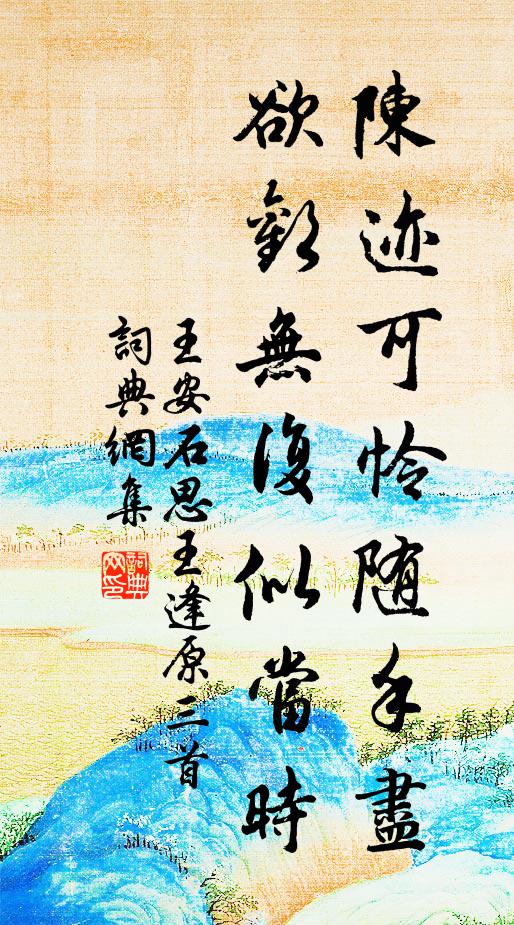 陳迹可怜随手盡
欲歡無復似當時
王安石思王逢原三首
詞典網集
詞典网印